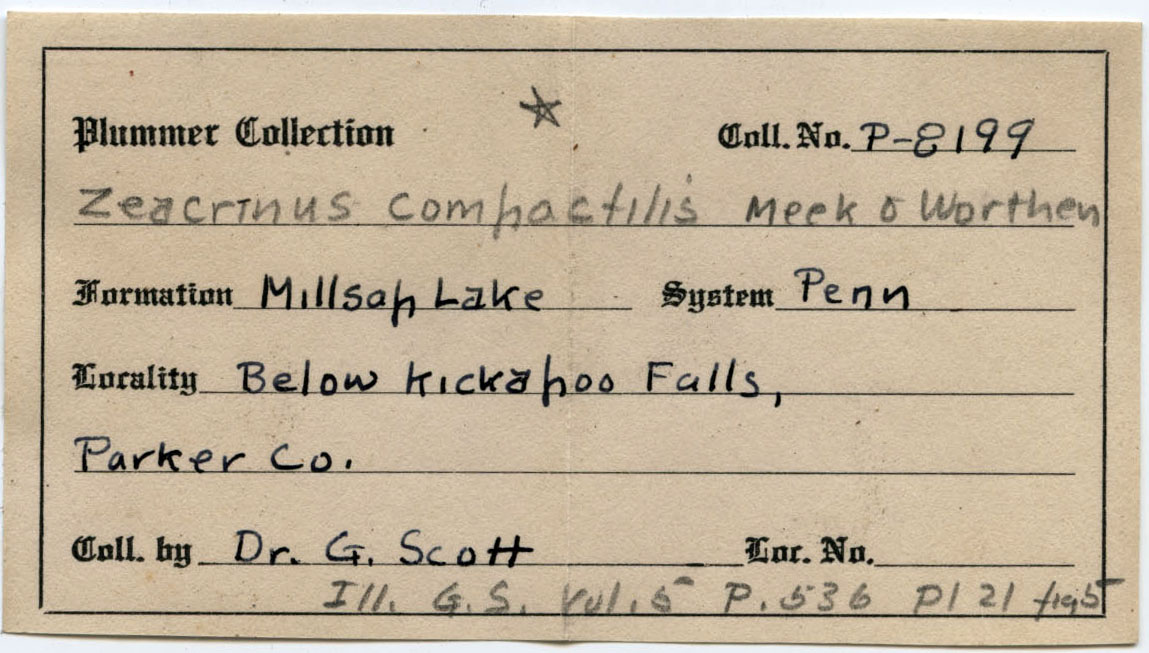 Plummer Collection Coll. No. P-8199
Zeacrinus compactilis Meek & Worthen
Formation Millsap Lake System Penn
Locality Below Kickapoo Falls,
Parker Co.
Coll. by Dr. G. Scott Loc. No.
Ill. G.S. Vol. 5 P. 536 Pl 21 fig 5